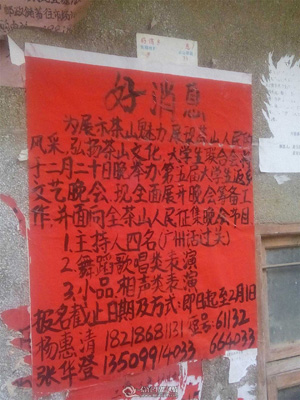 好消息
为展示茶山魅力,展现茶山人民的
风采,弘扬茶山文化,大学生联合会
于二月二十日举办第五届大学生返乡
文艺晚会,现全面展开晚会筹备工
作,并面向全茶山人民征集晚会节目
1.主持人四名(广州话过关)
2.舞蹈歌唱类表演
3.小品相声类表演
报名截止日期及方式:即日起至2月1
杨惠清 18218681131 短号:61132
张华登 13509914033 664033